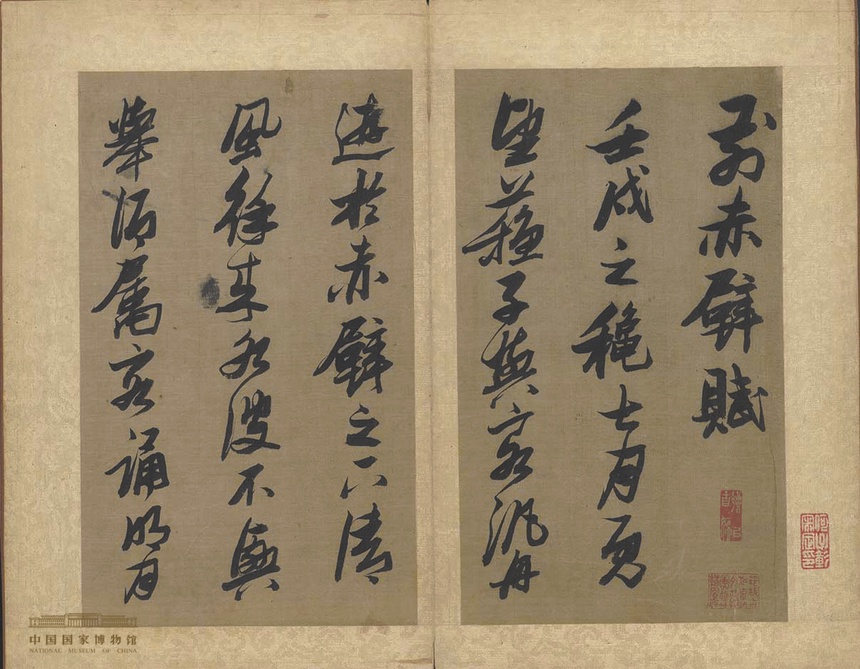 前赤壁賦
壬戌之穐七月既
望蘇子與客汎舟
遊於赤壁之下清
風徐來水波不興
舉酒屬客誦明月
中国国家博物馆
NATIONAL MUSEUM OF CHINA